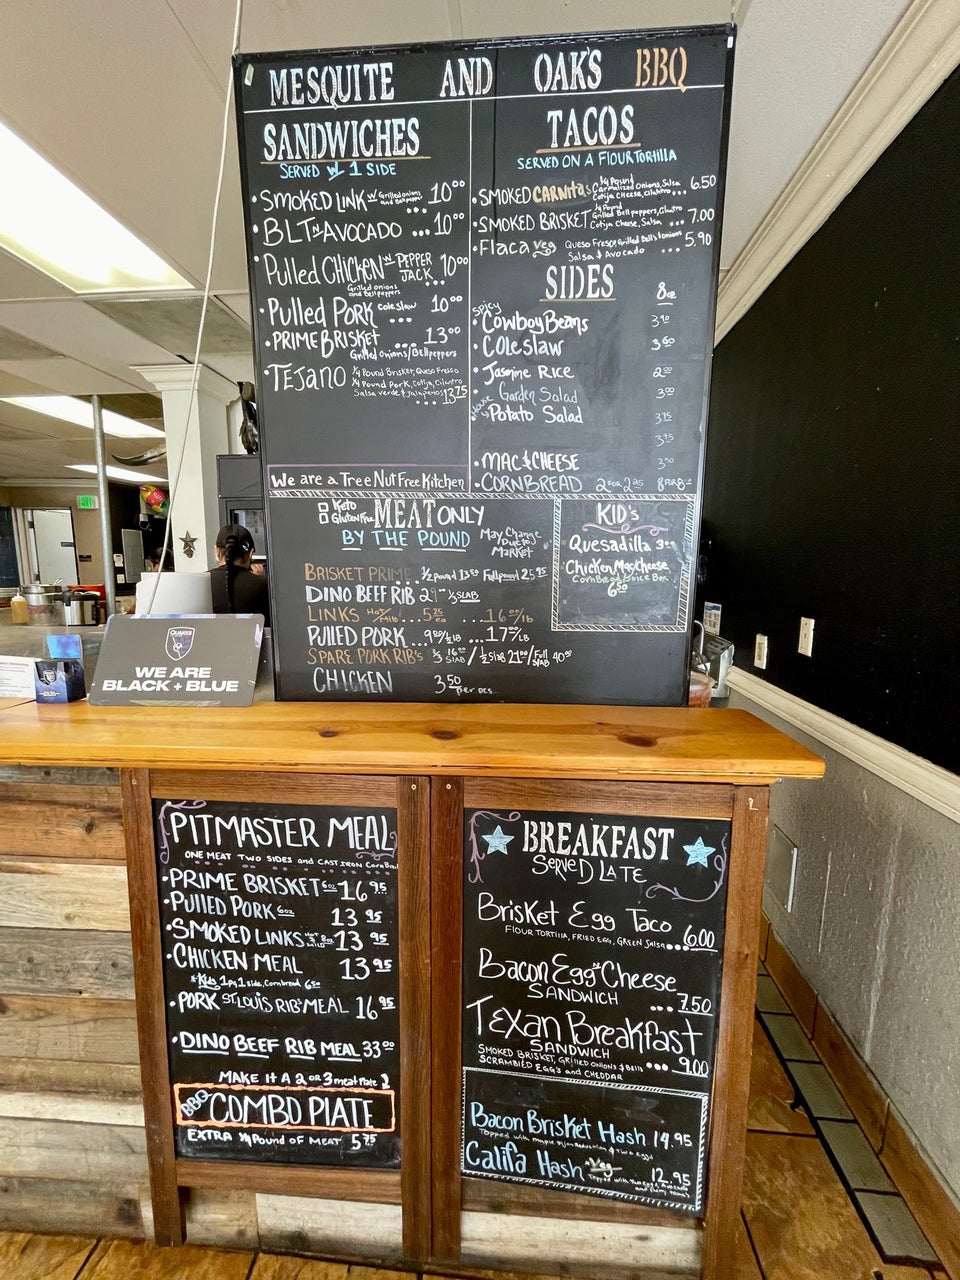 MESQUITE AND OAK'S BBQ
SANDWICHES
SERVED W 1 SIDE
• SMOKED LINK W Grilled onions and Bell peppers 10⁰⁰
• BLT N AVOCADO ... 10⁰⁰
• Pulled CHICKEN W PEPPER JACK .. 10⁰⁰
Grilled onions and Bell peppers
• Pulled PORK cole slaw ... 10⁰⁰
• PRIME BRISKET ... 13⁰⁰
Grilled Onions/Bell peppers
• TEJANO ¼ Pound Brisket, Queso Fresco
¼ Pound Pork, Cotija, Cilantro
Salsa Verde & Jalapenos
.... 13.75
We are a Tree Nut Free Kitchen
TACOS
SERVED ON A FLOUR TORTILLA
• SMOKED CARNITAS ¼ Pound Carmalized Onions, Salsa Cotija Cheese, Cilantro ... 6.50
• SMOKED BRISKET ¼ Pound Grilled Bell peppers, Cilantro Cotija Cheese, Salsa ... 7.00
• Flaca Veg Queso Fresco, Grilled Bell's & onions Salsa & Avocado ... 5.90
SIDES 8oz
Spicy
• Cowboy Beans
• Coleslaw 3⁶⁰
• Jasmine Rice 2⁰⁰
• Garden Salad 3⁰⁰
House
• Potato Salad 3.75
3.75
• MAC & CHEESE
• CORNBREAD 2 FOR 2²⁵ 8 FOR 8⁻
Keto
Gluten Free
MEAT ONLY
BY THE POUND
May Change Due to Market
BRISKET PRIME ½ pound 13⁵⁰ Full pound 25⁹⁵
DINO BEEF RIB ⅓ SLAB
LINKS Hot/Mild ... 5²⁵ EA 16⁰⁰/lb
PULLED PORK ... 9⁰⁰/½lb ... 17⁰⁰/LB
SPARE PORK RIB'S ⅓ 16⁰⁰ SLAB / ½ Slab 21⁰⁰ / Full SLAB 40⁰⁰
CHICKEN 3.50 per pcs.
KID'S
Quesadilla
Chicken Mac, Cheese
Corn Bread/Juice Box
6⁵⁰
QUAKES
WE ARE
BLACK + BLUE
PITMASTER MEAL
ONE MEAT TWO SIDES and CAST IRON Corn Bread
• PRIME BRISKET 6oz 16⁹⁵
• PULLED PORK 6oz 13⁹⁵
• SMOKED LINKS HOT MILD 8oz 13⁹⁵
• CHICKEN MEAL 13⁹⁵
*Kids 1 pc, 1 side, Cornbread 6⁵⁰
• PORK ST LOUIS RIB'S MEAL 16⁹⁵
• DINO BEEF RIB MEAL 33⁰⁰
MAKE IT A 2 OR 3 meat Plate
BBQ COMBO PLATE
EXTRA ¼ Pound OF MEAT 5⁷⁵
BREAKFAST
SERVED LATE
BRISKET EGG TACO
FLOUR TORTILLA, FRIED EGG, GREEN SALSA ... 6.00
BACON EGG N CHEESE
SANDWICH ... 7.50
TEXAN BREAKFAST
SANDWICH
SMOKED BRISKET, GRILLED ONIONS & Bells ... 9.00
SCRAMBLED EGG'S and CHEDDAR
Bacon Brisket Hash 14.95
Califa Hash Veg 12.95